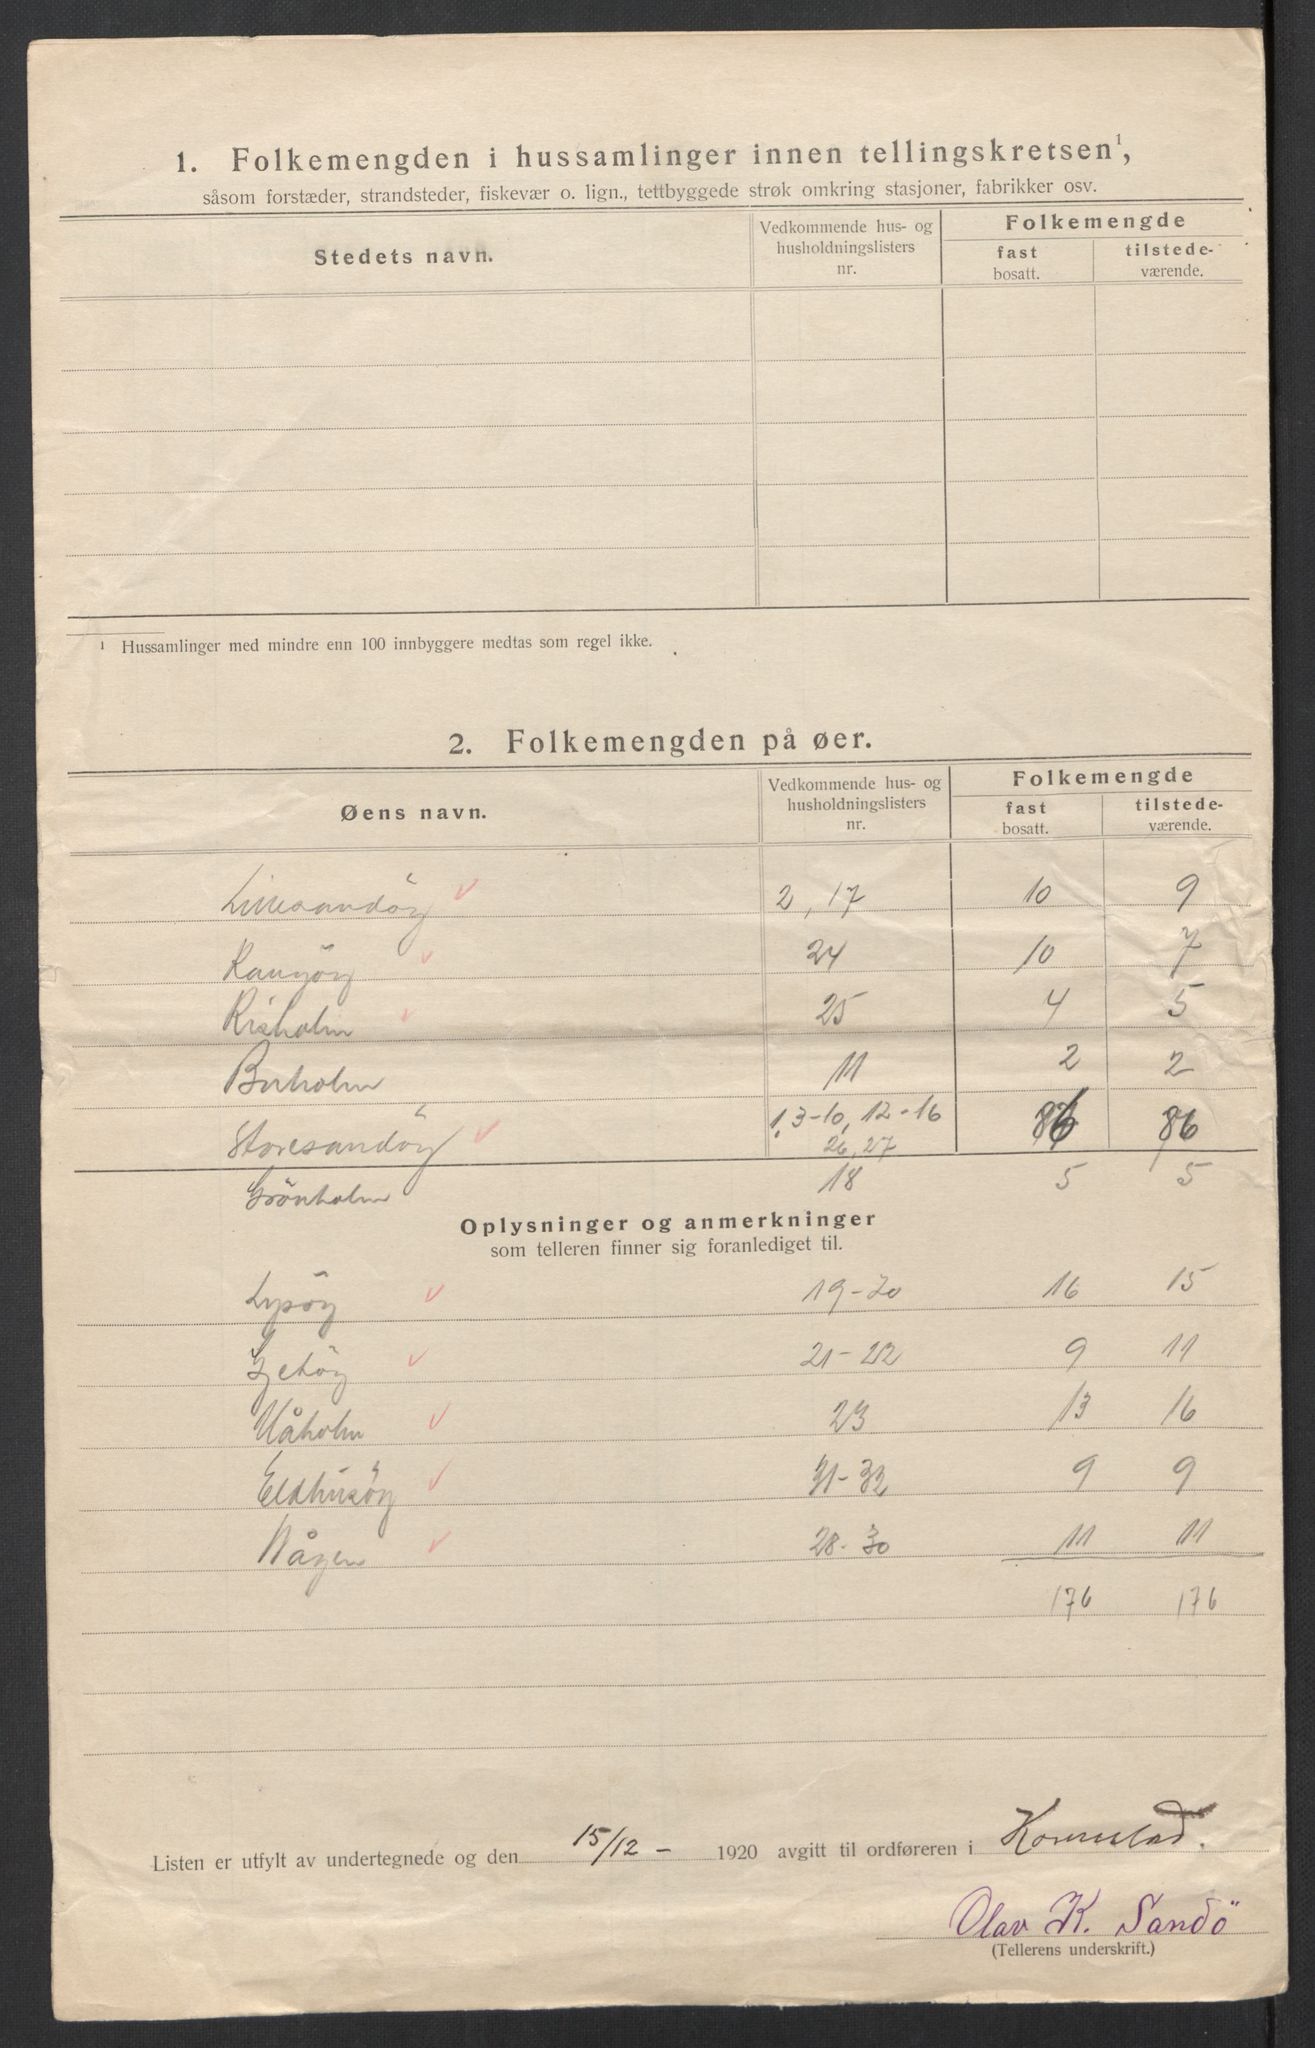 1. Folkemengden i hussamlinger innen tellingskretsen¹,
såsom forstæder, strandsteder, fiskevær o. lign., tettbyggede strøk omkring stasjoner, fabrikker osv.
Stedets navn.
Vedkommende hus- og husholdningslisters nr.
Folkemengde
fast bosatt.
tilstedeværende.
¹ Hussamlinger med mindre enn 100 innbyggere medtas som regel ikke.
2. Folkemengden på øer.
Øens navn.
Vedkommende hus- og husholdningslisters nr.
Folkemengde
fast bosatt.
tilstedeværende.
Litlesandöy 2, 17 10 9
24 10 7
Risholm 25 4 5
Burholm 11 2 2
Storesandöy 1, 3-10, 12-16 86 86
26, 27
Grönholm 18 5 5
Oplysninger og anmerkninger
som telleren finner sig foranlediget til.
Lysöy 19-20 16 15
21-22 9 11
Våholm 23 13 16
Eldhusöy 31-32 9 9
Vågen 28-30 11 11
176 176
Listen er utfylt av undertegnede og den 15/12 - 1920 avgitt til ordføreren i Kornstad.
Olav K. Sandö
(Tellerens underskrift.)